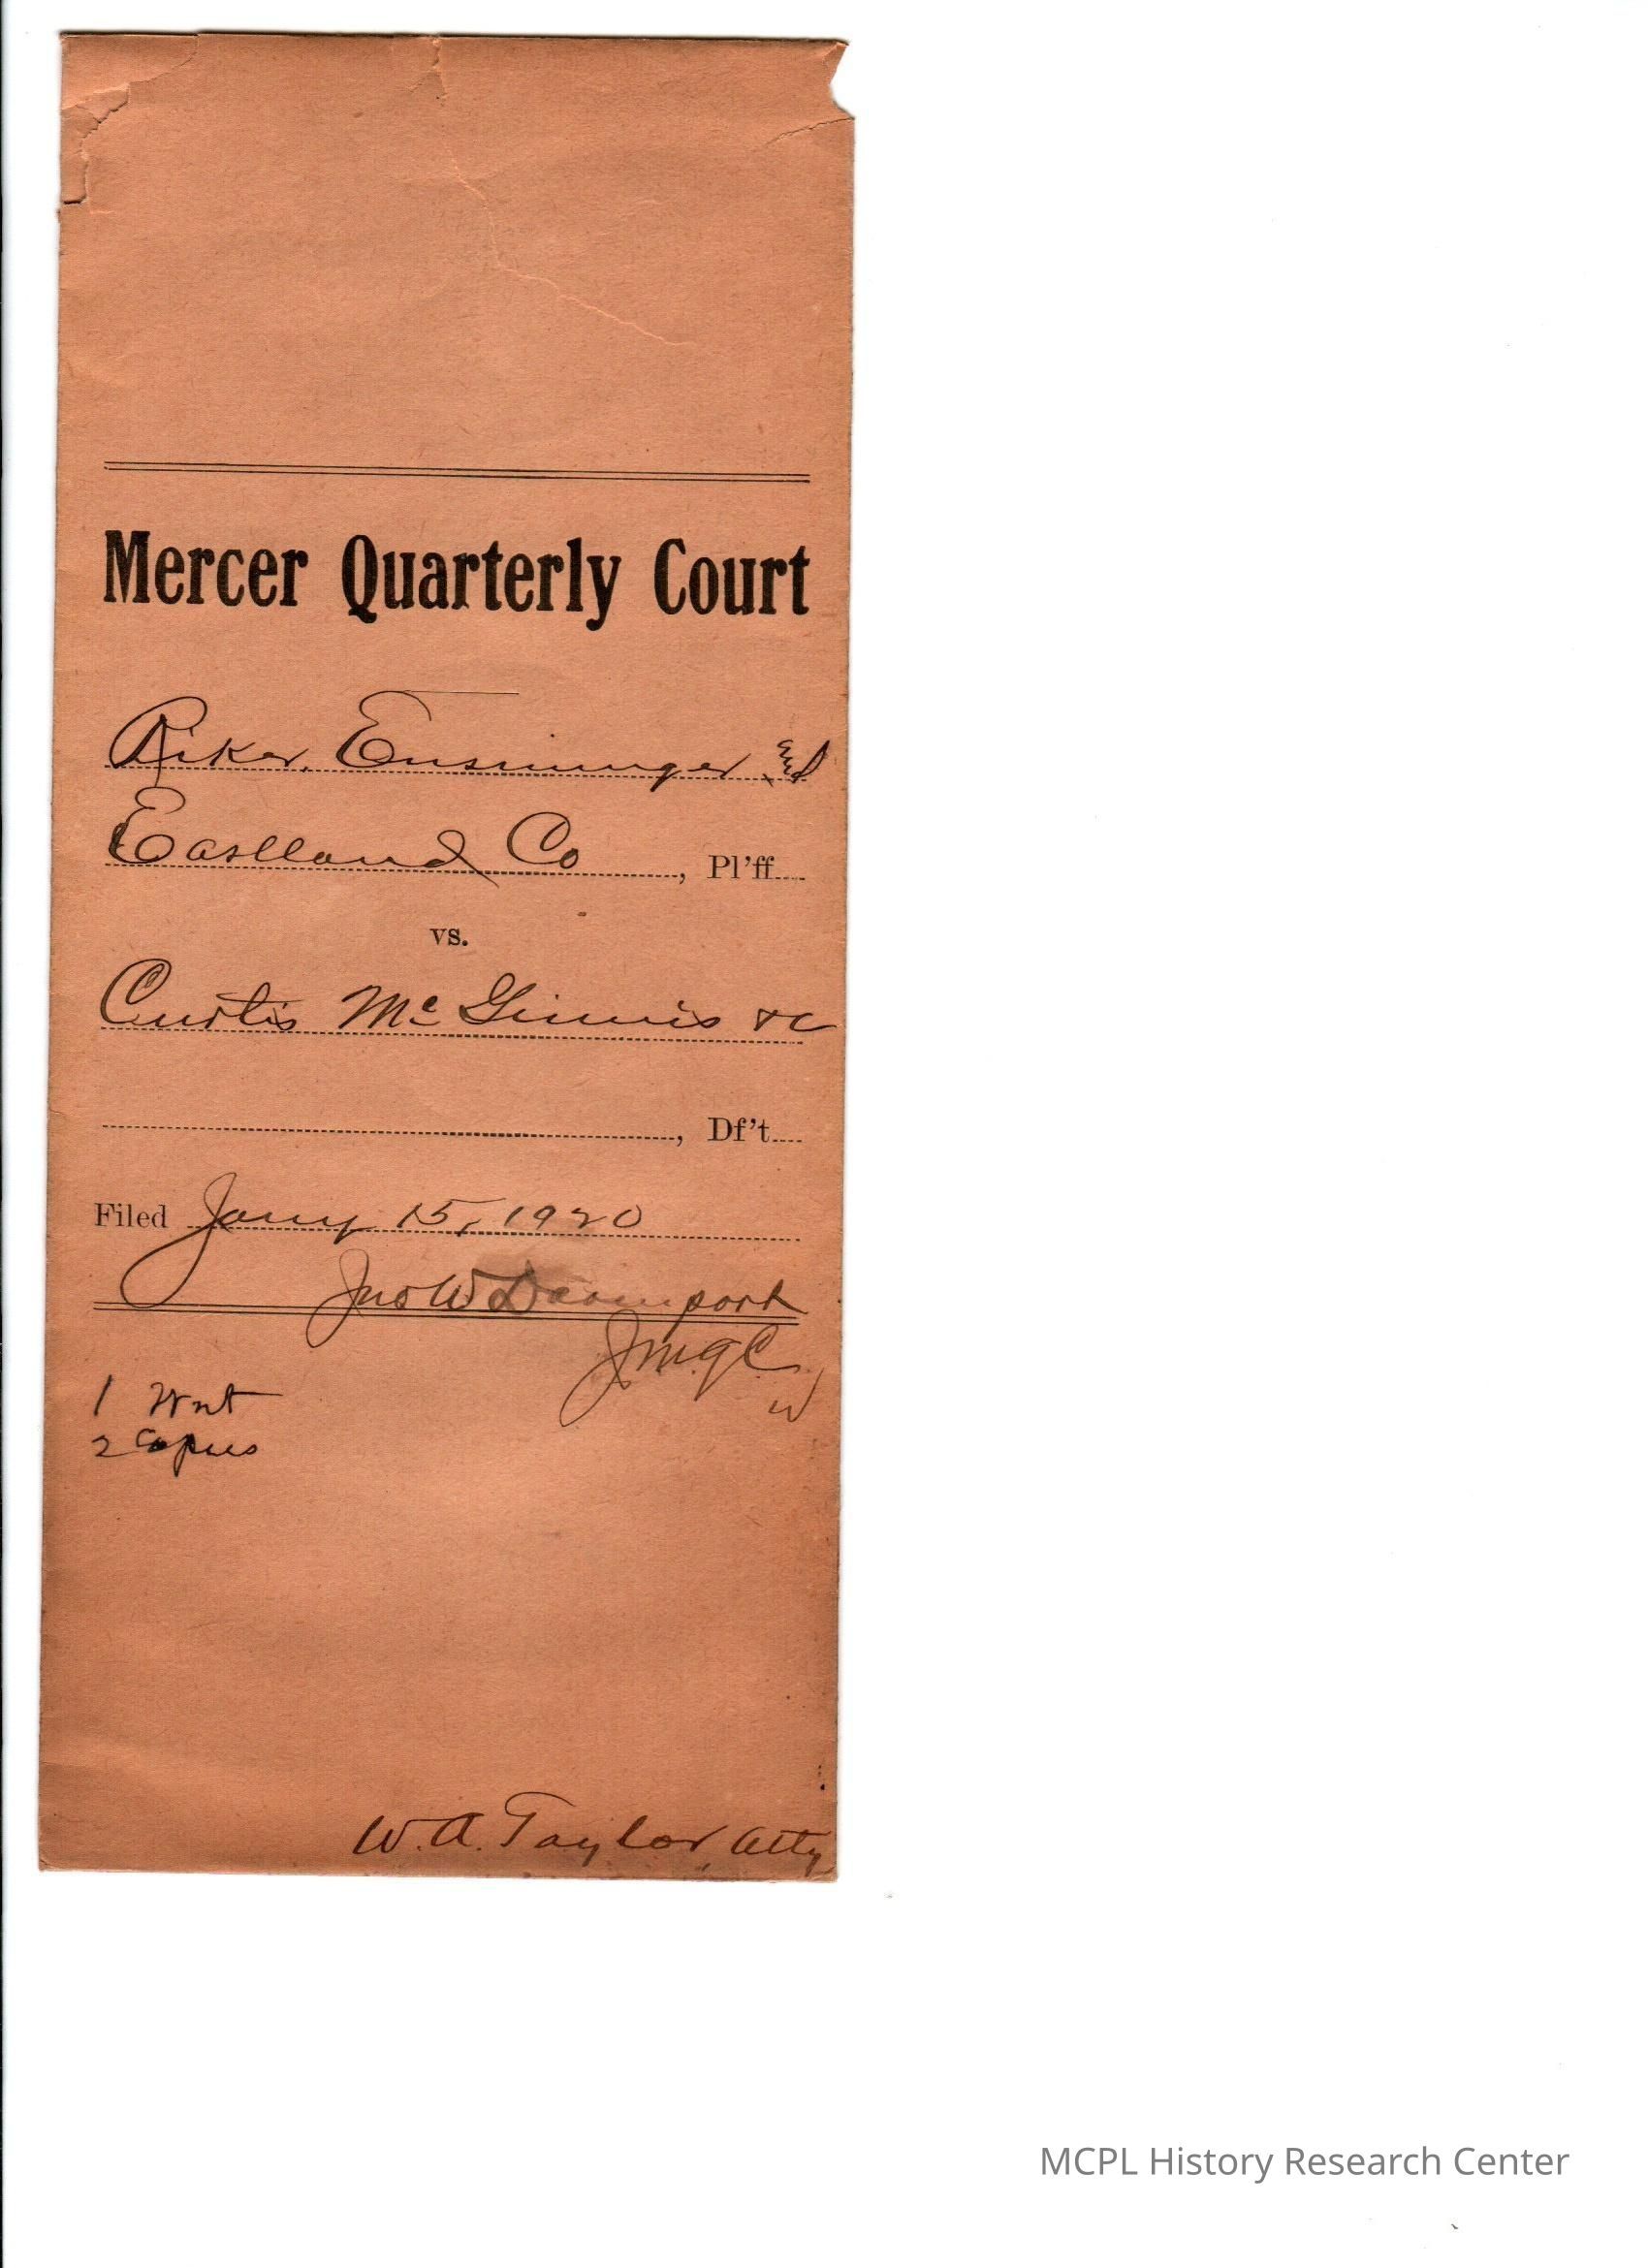 Mercer Quarterly Court
Riker, Ensminger and
Eastland Co, Pl'ff
vs.
Curtis McGinnis &c
, Df't
Filed Jany 15, 1920
Jno W Davenport
JMQC
1 Writ
2 Copies
W. A. Taylor, Atty
MCPL History Research Center